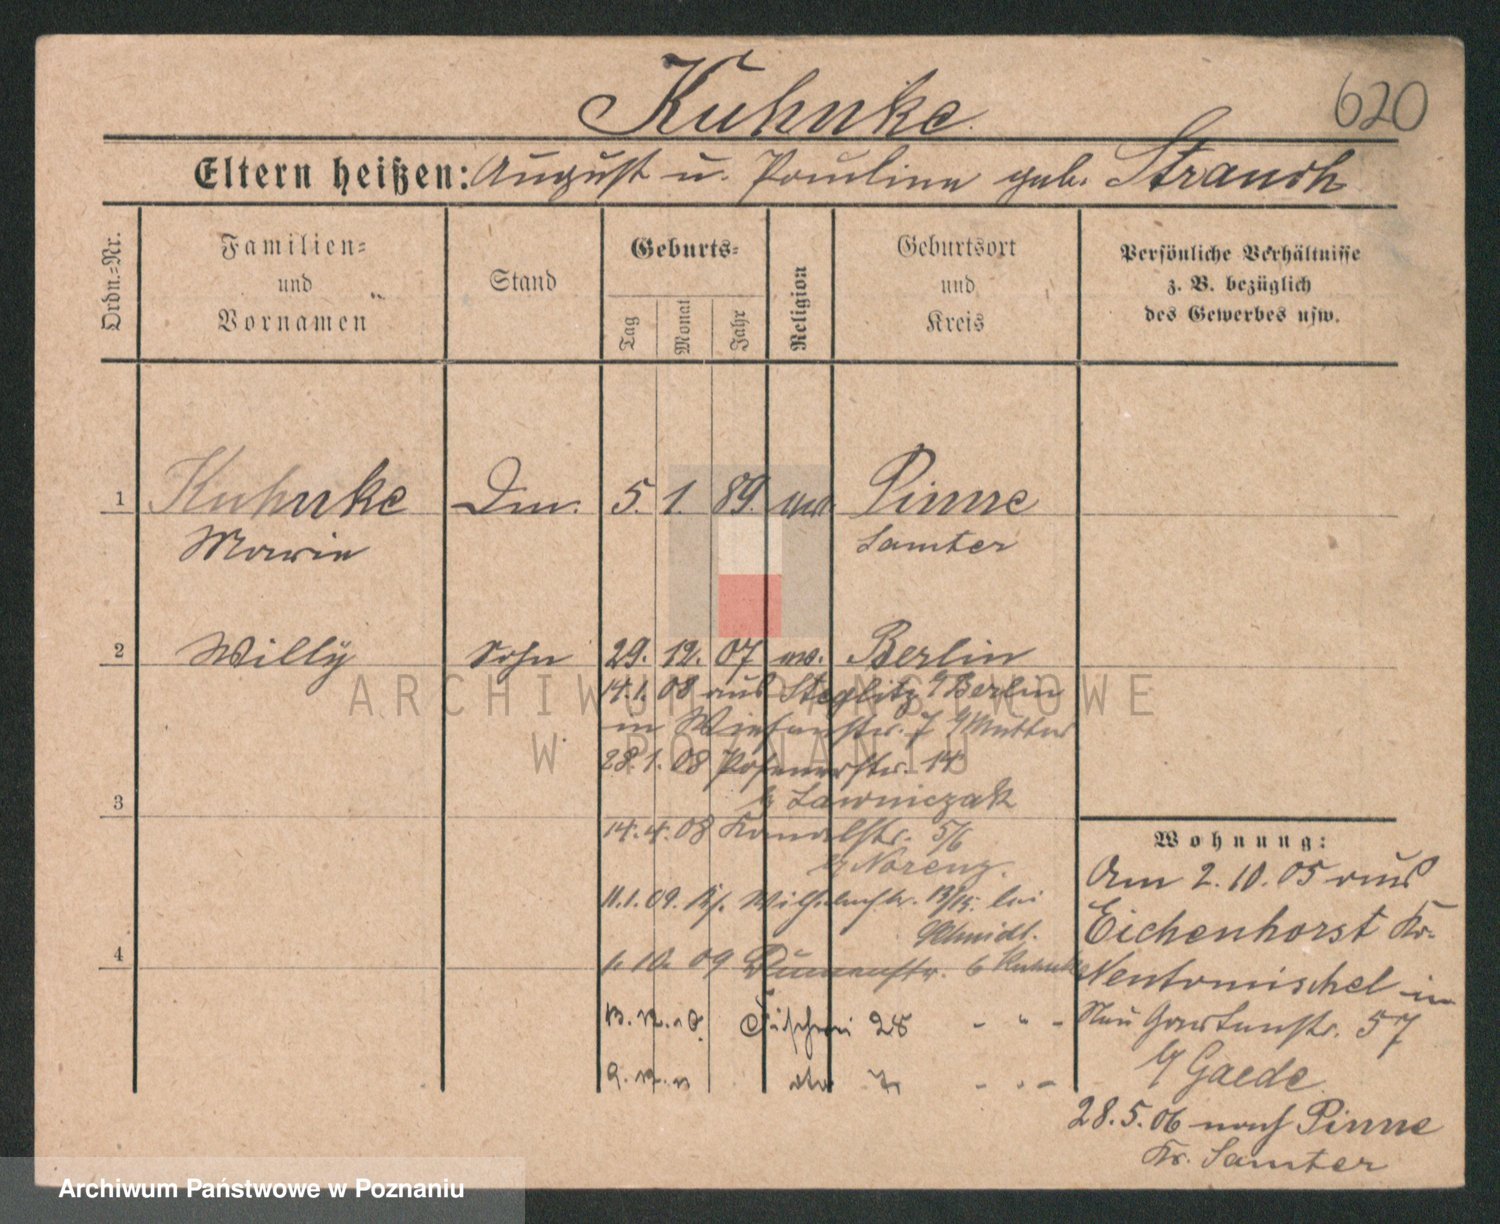 Kuhnke
620
Eltern heißen: August u. Paulina geb. Strauch
Ordn.-Nr.
Familien-
und
Vornamen
Stand
Geburts-
Tag
Monat
Jahr
Religion
Geburtsort
und
Kreis
Persönliche Verhältnisse
z. B. bezüglich
des Gewerbes usw.
1 Kuhnke 5. 1. 89. Pinne
Marie Samter
2 Willy Sohn 29. 12. 07 ev. Berlin
14.1.08 aus Steglitz b/Berlin
in Wiesenstr. 7 b/Mutter
28.1.08 Posenerstr. 14
b/ Lawniczak
3
14.4.08 Kanalstr. 5/6
b/ Norenz.
11.1.09. Wilhelmstr. bei
Schmidt.
4
1.10.09 6 Kuhnke
Fischerei 28 - " -
Wohnung:
Am 2.10.05 aus
Eichenhorst Kr.
Neutomischel in
Neu Gartenstr. 57
b/ Gaede
28.5.06 nach Pinne
Kr. Samter
ARCHIWUM PAŃSTWOWE
W POZNANIU
Archiwum Państwowe w Poznaniu